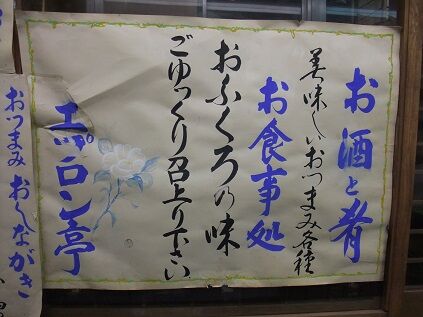 お酒と肴
美味しいおつまみ各種
お食事処
おふくろの味
ごゆっくり召上り下さい
エプロン亭
おつまみ
おしながき